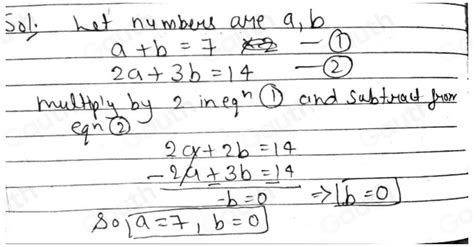 Sol. Let numbers are a, b
a + b = 7 — ①
2a + 3b = 14 — ②
multiply by 2 in eqⁿ ① and subtract from
eqⁿ ②
2a + 2b = 14
- 2a + 3b = 14
-b = 0 ⇒ b = 0
So, a = 7, b = 0